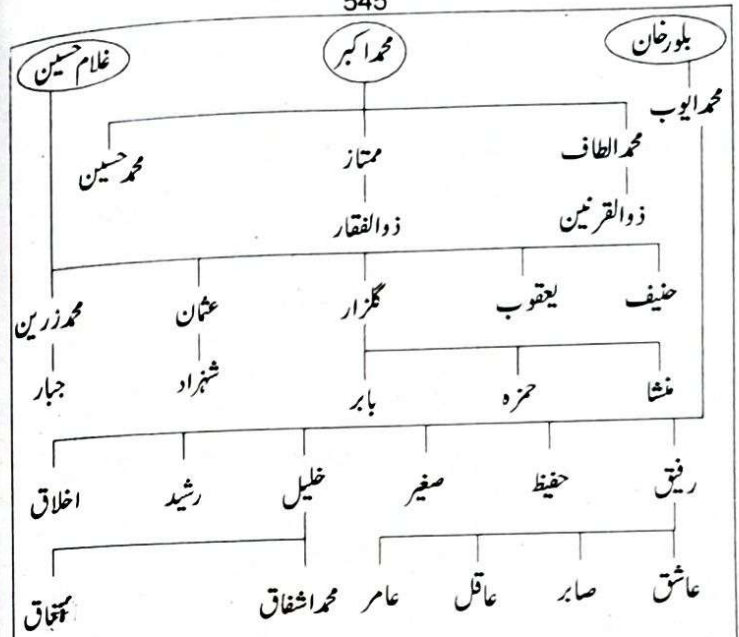 545
بلورخان محمد اکبر غلام حسین
محمد ایوب
محمد الطاف ممتاز محمد حسین
ذوالقرنین ذوالفقار
حنیف یعقوب گلزار عثمان محمد زرین
منشا حمزہ بابر شہزاد جبار
رفیق حفیظ صغیر خلیل رشید اخلاق
عاشق صابر عاقل عامر محمد اشفاق